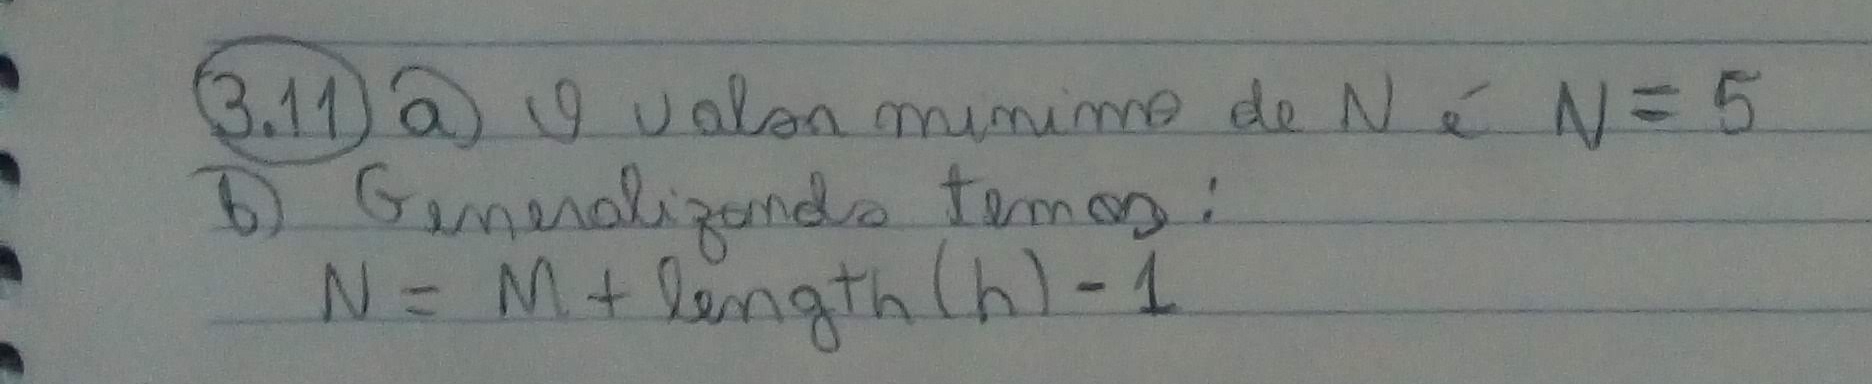 3.11) a) O valor mínimo de N é N = 5
b) Generalizando temos:
N = M + length(h) - 1